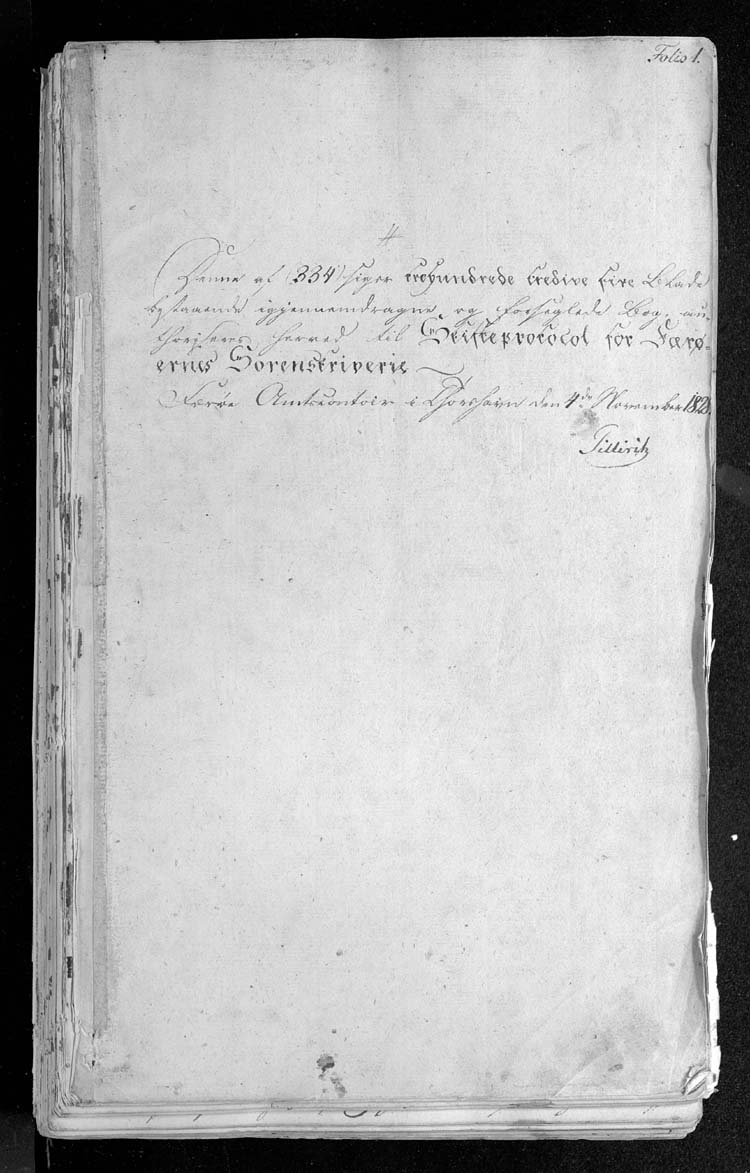 Folio 1.
Denne af (334) siger trehundrede tredive fire Blade
bestaaende igjennemdragne og forseglede Bog, au-
thoriseres herved til Skifteprotocol for Færø-
ernes Sorenskriverie
Færøe Amtscontoir i Thorshavn den 4de November
Tillisch